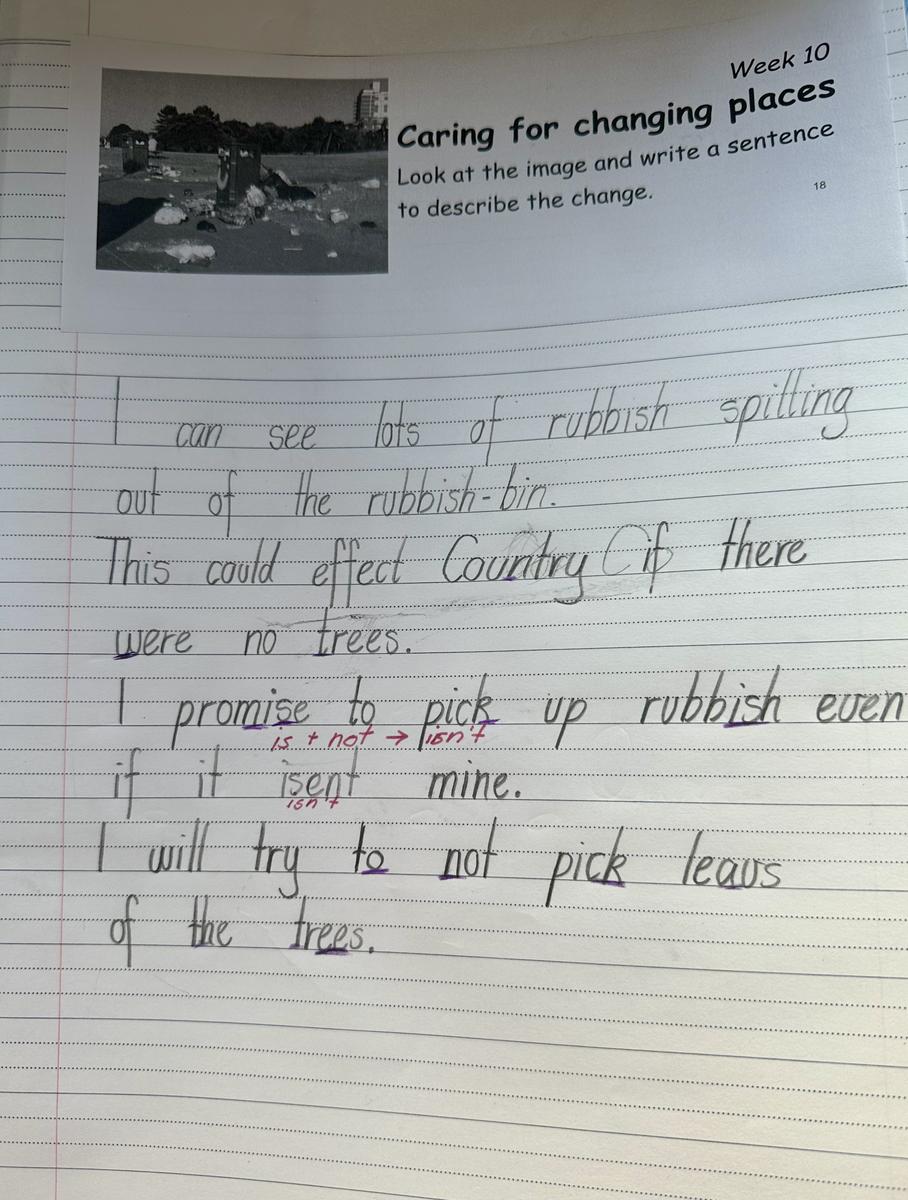 Week 10
Caring for changing places
Look at the image and write a sentence
to describe the change.
18
I can see lots of rubbish spilling
out of the rubbish-bin.
This could effect Country if there
were no trees.
I promise to pick up rubbish even
is + not → isn't
if it isent mine.
isn't
I will try to not pick leavs
of the trees.